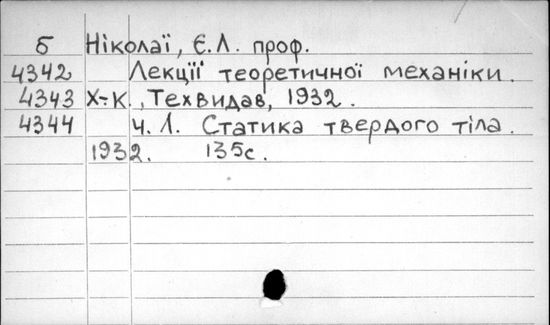 б Ніколаї, Є.Л. проф.
4342 Лекції теоретичної механіки.
4343 Х.-К., Техвидав, 1932.
4344 ч. 1. Статика твердого тіла.
1932. 135с.